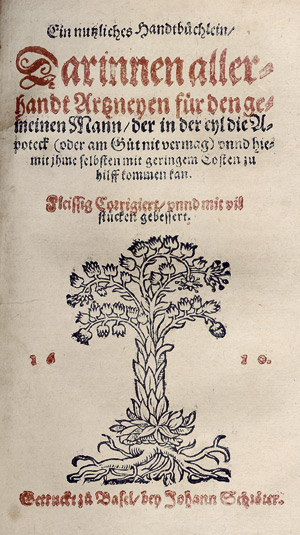 Ein nutzliches Handtbüchlein/
Darinnen aller-
handt Artzneyen für den ge-
meinen Mann/ der in der eyl die A-
poteck (oder am Gůt nit vermag) vnnd hie-
mit jhme selbsten mit geringem Costen zu
hilff kommen kan.
Fleissig Corrigiert/ vnnd mit vil
stucken gebessert.
1 6 1 0.
Getruckt zů Basel/ bey Johann Schröter.